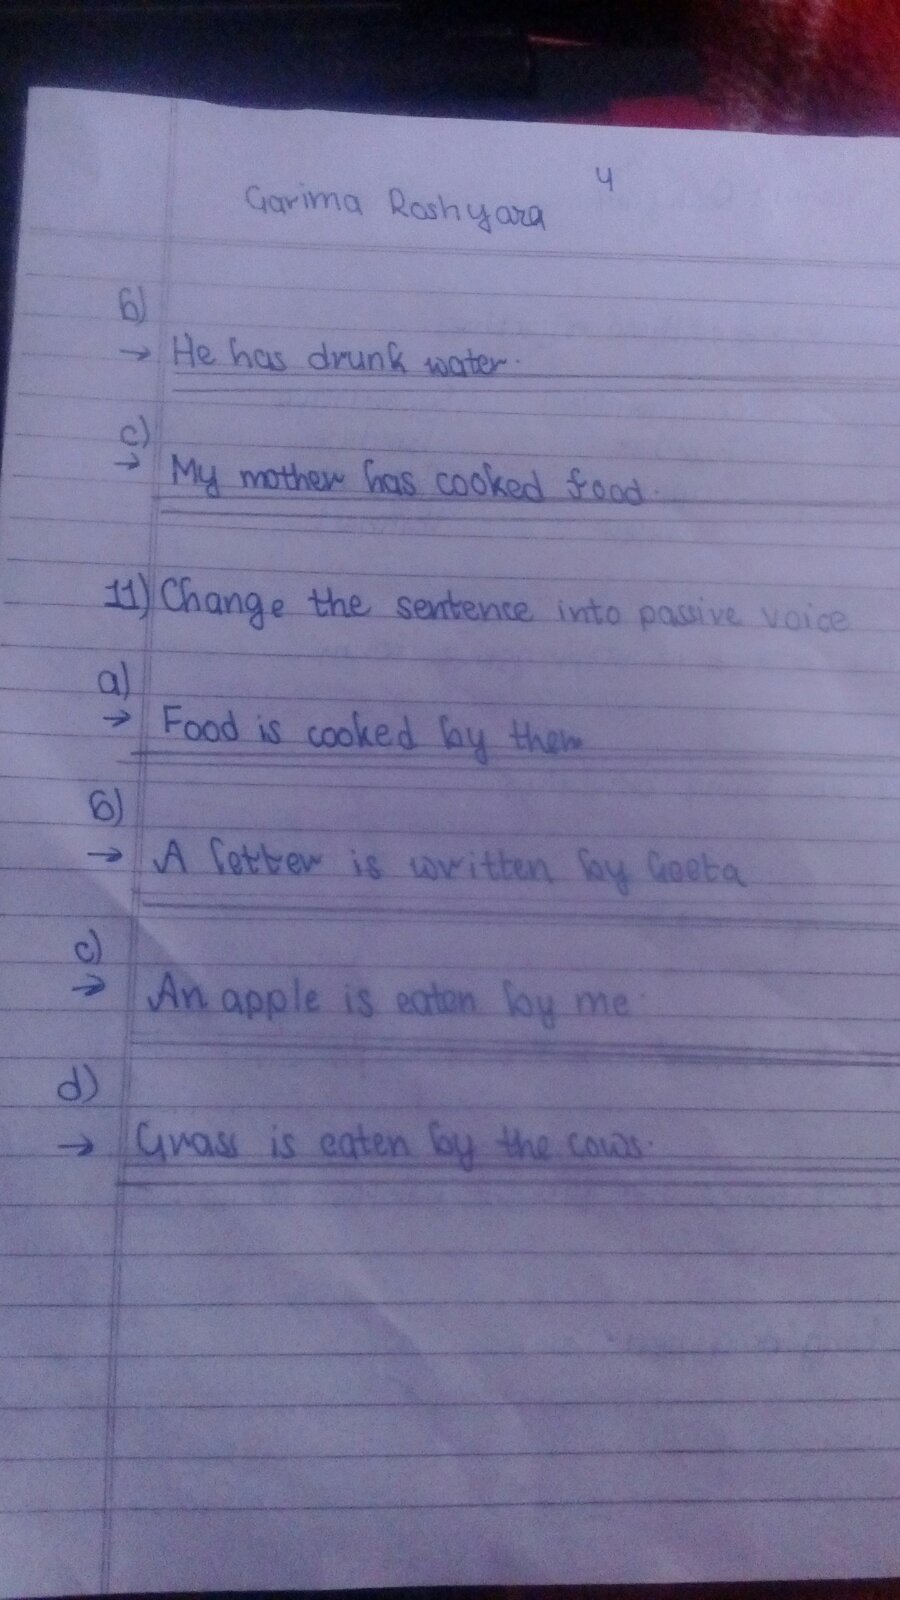 4
Garima Roshyara
b)
→ He has drunk water.
c)
→ My mother has cooked food.
11) Change the sentence into passive voice
a)
→ Food is cooked by them
b)
→ A letter is written by Geeta
c)
→ An apple is eaten by me.
d)
→ Grass is eaten by the cows.